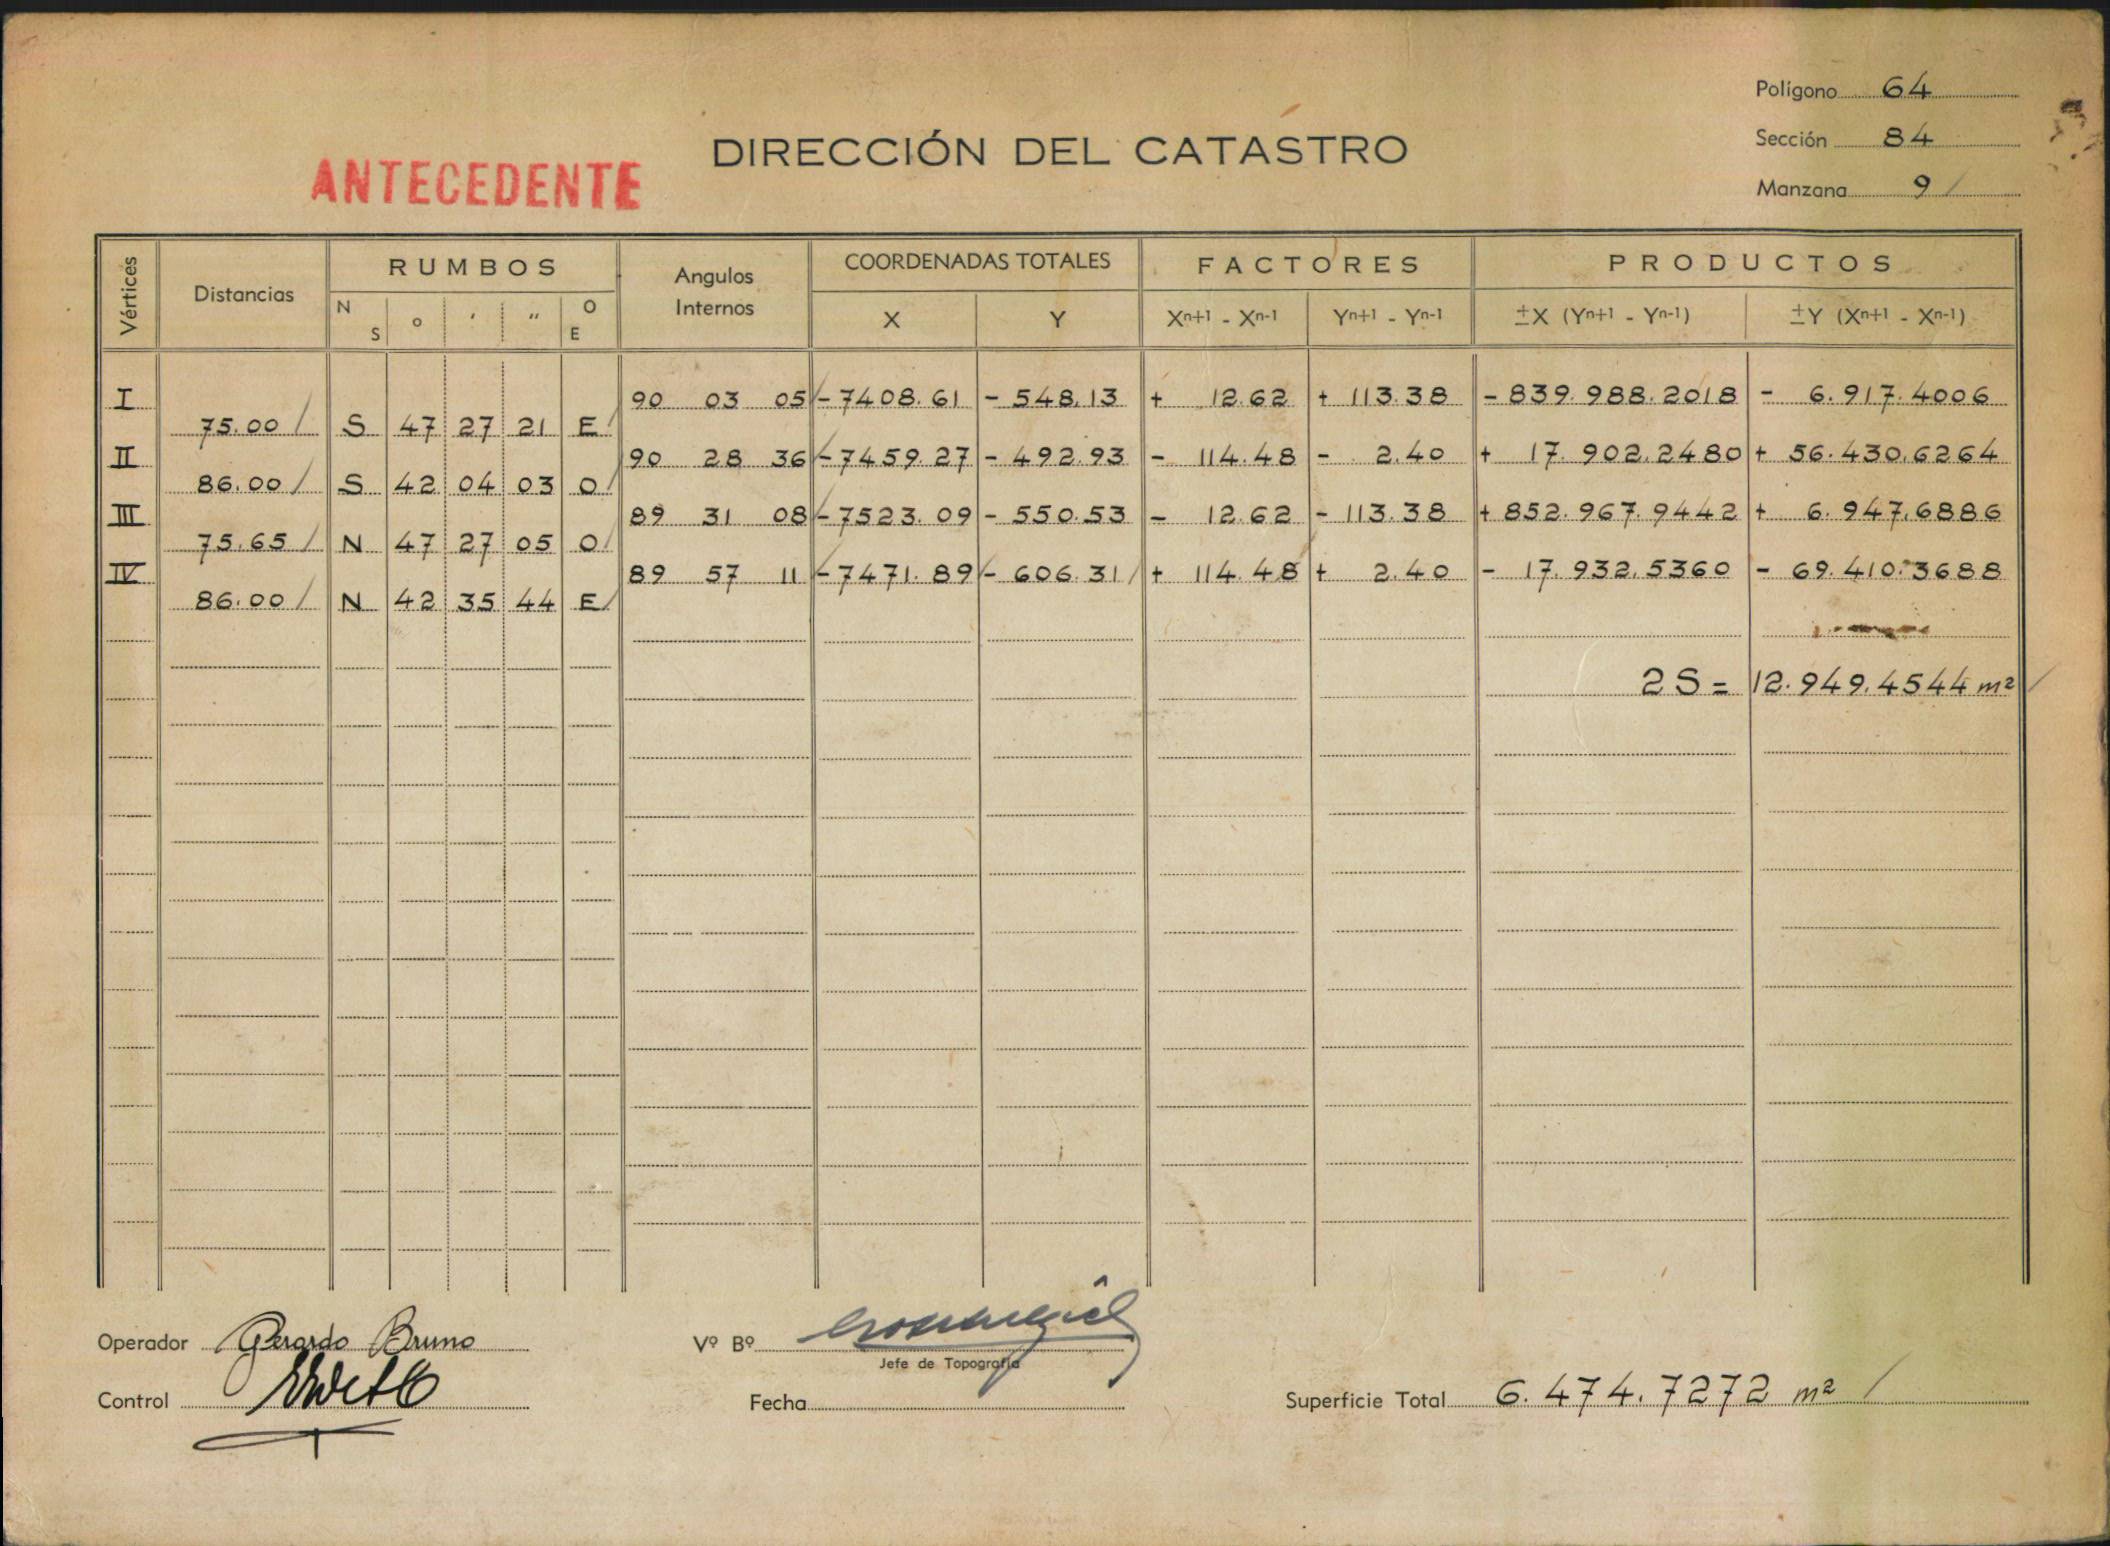 Polígono 64
DIRECCIÓN DEL CATASTRO
Sección 84
ANTECEDENTE
Manzana 9
Vértices Distancias RUMBOS Angulos Internos COORDENADAS TOTALES FACTORES PRODUCTOS
N S ° ' " O E X Y Xⁿ⁺¹ - Xⁿ⁻¹ Yⁿ⁺¹ - Yⁿ⁻¹ ±X (Yⁿ⁺¹ - Yⁿ⁻¹) ±Y (Xⁿ⁺¹ - Xⁿ⁻¹)
I 90 03 05 -7408.61 - 548.13 + 12.62 + 113.38 - 839.988.2018 - 6.917.4006
75.00 S 47 27 21 E
II 90 28 36 -7459.27 - 492.93 - 114.48 - 2.40 + 17.902.2480 + 56.430.6264
86.00 S 42 04 03 O
III 89 31 08 -7523.09 - 550.53 - 12.62 - 113.38 + 852.967.9442 + 6.947.6886
75.65 N 47 27 05 O
IV 89 57 11 -7471.89 - 606.31 + 114.48 + 2.40 - 17.932.5360 - 69.410.3688
86.00 N 42 35 44 E
2S = 12.949.4544 m²
Operador Gerardo Bruno
Vº Bº
Jefe de Topografía
Control
Fecha
Superficie Total 6.474.7272 m²